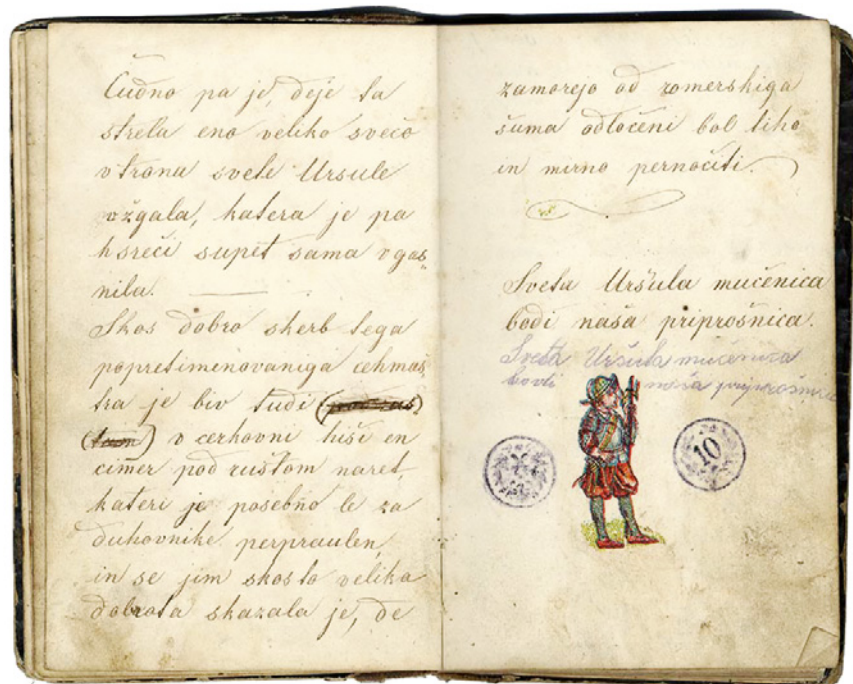 Čudno pa je, deje ta
strela eno veliko svečo
v trona svete Ursule
vžgala, katera je pa
k sreči supet sama vgas,
nila.
Skos dobro skerb tega
popretimenovaniga cehmas,
tra je biv tudi
v cerkovni hiši en
cimer pod ruštom naret,
kateri je posebno le za
duhovnike perpraulen,
in se jim skos to velika
dobrota skazala je, de
zamorejo od romerskiga
šuma odločeni bol tiho
in mirno pernočiti.
Sveta Uršula mučenica
bodi naša priprošnica.
Sveta Uršula mučenica
bodi naša priprošnica
10